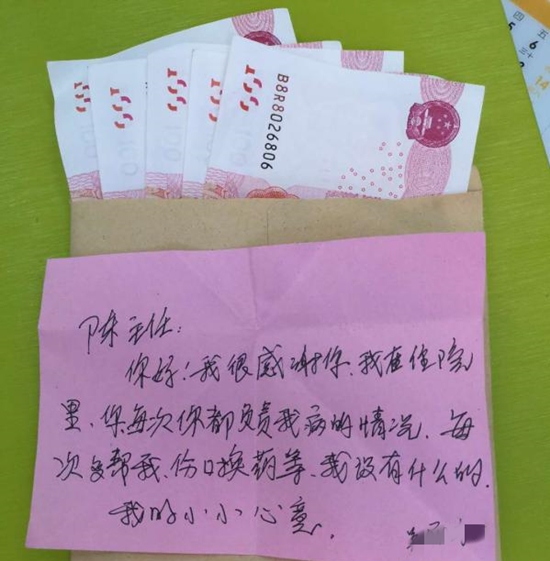 B8R8026806
陈主任:
你好!我很感谢你、我在住院
里、你每次你都负责我病的情况、每
次多帮我、伤口换药等、我没有什么的.
我的小小心意.
四 五
5 6
三十
14